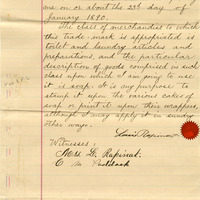 one on or about the 23d day of
January 1890.
The class of merchandise to which
this trade-mark is appropriated is
toilet and laundry articles and
preparations, and the particular
description of goods comprised in such
class upon which I am going to use
it is soap. It is my purpose to
stamp it upon the various cakes of
soap or print it upon their wrappers,
although I may apply it in sundry
other ways.
Louis
Witnesses:
Moses G.
C. M.